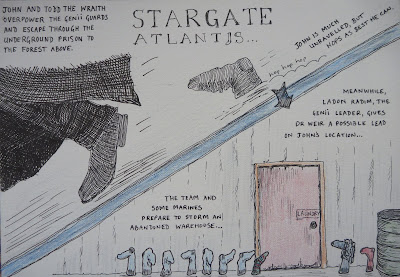 STARGATE
ATLANTIS...
JOHN AND TODD THE WRAITH
OVERPOWER THE GENII GUARDS
AND ESCAPE THROUGH THE
UNDERGROUND PRISON TO
THE FOREST ABOVE.
JOHN IS MUCH
UNRAVELLED, BUT
HOPS AS BEST HE CAN.
hop hop hop
MEANWHILE,
LADON RADIM, THE
GENII LEADER, GIVES
DR WEIR A POSSIBLE LEAD
ON JOHNS LOCATION...
THE TEAM AND
SOME MARINES
PREPARE TO STORM AN
ABANDONED WAREHOUSE...
LAUNDRY